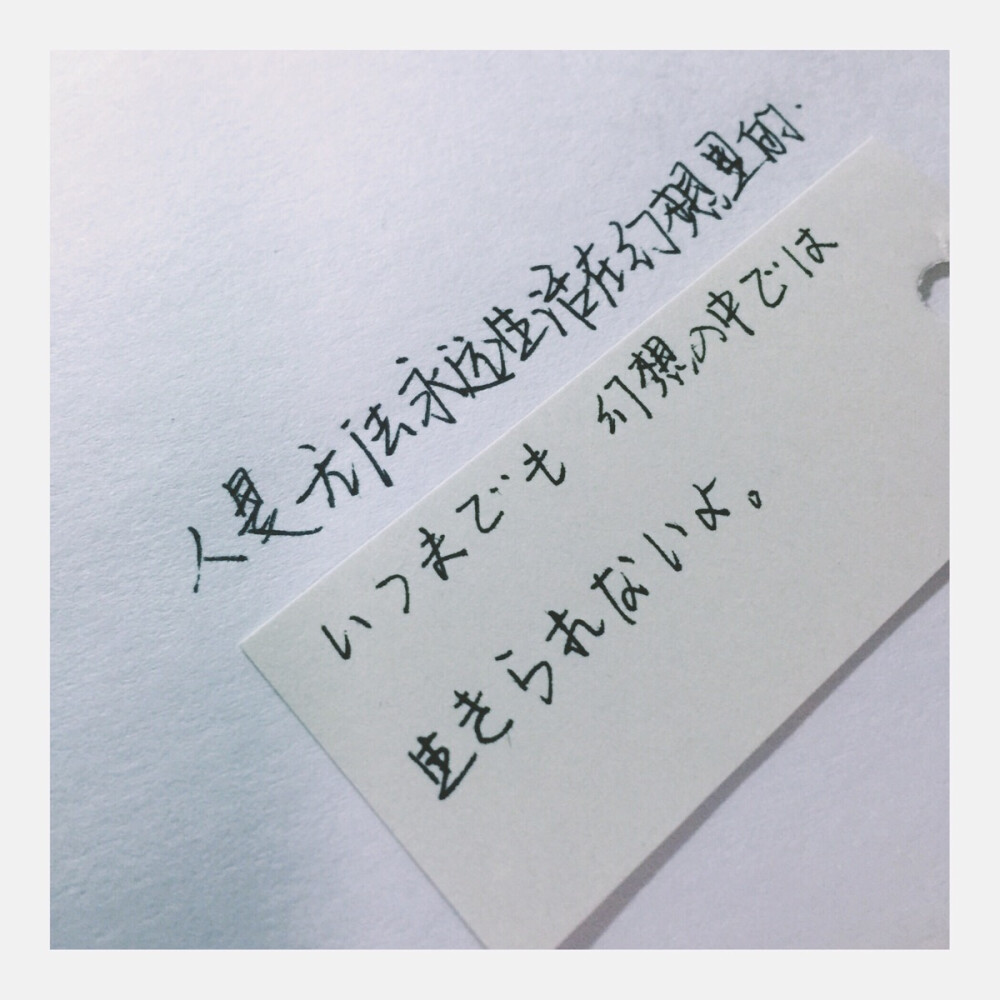 人是无法永远生活在幻想里的.
いつまでも 幻想の中では
生きられないよ。